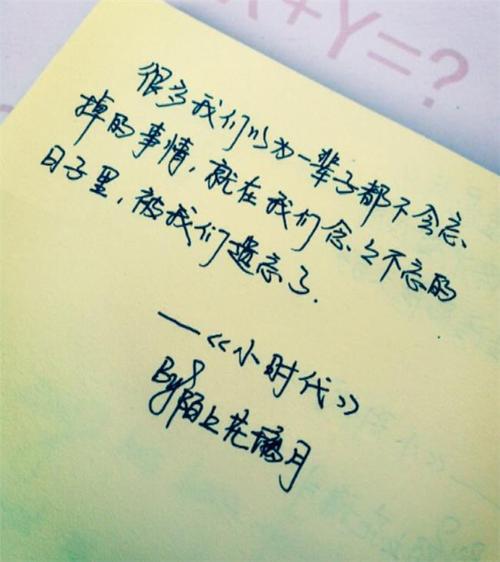 X+Y=?
很多我们以为一辈子都不会忘
掉的事情，就在我们念念不忘的
日子里，被我们遗忘了.
—《小时代》
By 陌上花